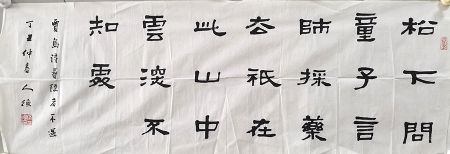 松下問
童子言
師採藥
去祇在
此山中
雲深不
知處
賈島詩尋隱者不遇
丁丑仲春